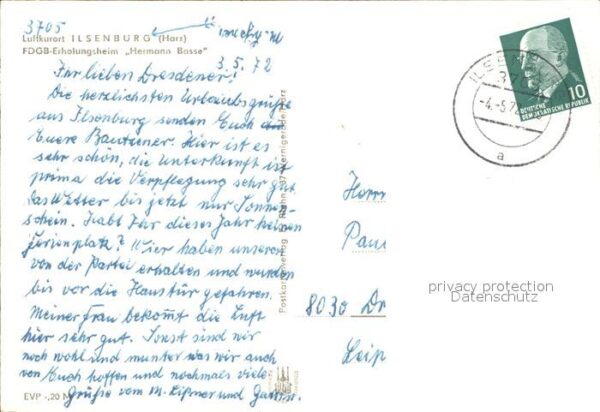 3705
Luftkurort ILSENBURG (Harz)
FDGB-Erholungsheim „Hermann Basse"
3.5.72
Ihr lieben Dresdener!
Die herzlichsten Urlaubsgrüße
aus Ilsenburg senden Euch
Euere Bautzener. Hier ist es
sehr schön, die Unterkunft ist
prima die Verpflegung sehr gut
das Wetter bis jetzt nur Sonnen-
schein. Habt Ihr dieses Jahr keinen
Ferienplatz? Wier haben unseren
von der Partei erhalten und wurden
bis vor die Haustür gefahren.
Meiner frau bekommt die Luft
hier sehr gut. Sonst sind wir
noch wohl und munter was wir auch
von Euch hoffen und nochmals viele
Grüße vom M. und
EVP -,20 M
Postkartenverlag 37 Wernigerode/Harz
ILSENBURG
37
-4.-5.72
a
10
DEUTSCHE
DEMOKRATISCHE REPUBLIK
Herrn
Pau
8030 Dr
Leip
privacy protection
Datenschutz